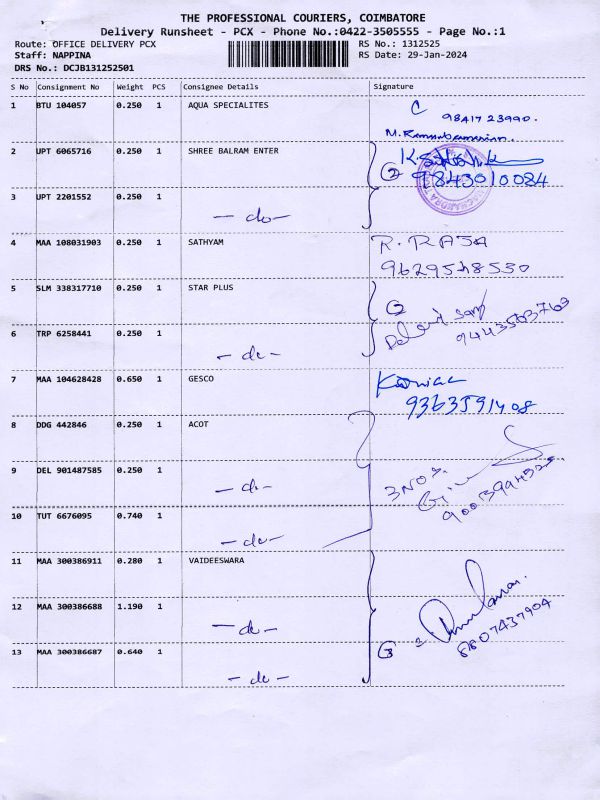 THE PROFESSIONAL COURIERS, COIMBATORE
Delivery Runsheet - PCX - Phone No.:0422-3505555 - Page No.:1
Route: OFFICE DELIVERY PCX RS No.: 1312525
Staff: NAPPINA RS Date: 29-Jan-2024
DRS No.: DCJB131252501
S No Consignment No Weight PCS Consignee Details Signature
1 BTU 104057 0.250 1 AQUA SPECIALITES
98417 23990.
2 UPT 6065716 0.250 1 SHREE BALRAM ENTER
② 9843010084
3 UPT 2201552 0.250 1
— do —
4 MAA 108031903 0.250 1 SATHYAM R. RAJA
9629548530
5 SLM 338317710 0.250 1 STAR PLUS
②
6 TRP 6258441 0.250 1 9443563763
— do —
7 MAA 104628428 0.650 1 GESCO
9363591408
8 DDG 442846 0.250 1 ACOT
9 DEL 901487585 0.250 1 3 NOS.
— do —
10 TUT 6676095 0.740 1
— do —
11 MAA 300386911 0.280 1 VAIDEESWARA
12 MAA 300386688 1.190 1
— do — 8807437904
13 MAA 300386687 0.640 1 ③
— do —